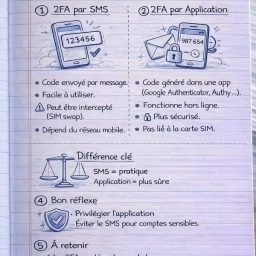 ① 2FA par SMS
123456
• Code envoyé par message.
• Facile à utiliser.
⚠ Peut être intercepté
(SIM swap).
• Dépend du réseau mobile.
② 2FA par Application
987 654
• Code généré dans une app
(Google Authenticator, Authy...).
• Fonctionne hors ligne.
• Plus sécurisé.
• Pas lié à la carte SIM.
Différence clé
SMS = pratique
Application = plus sûre
④ Bon réflexe
• Privilégier l'application
• Éviter le SMS pour comptes sensibles.
⑤ À retenir